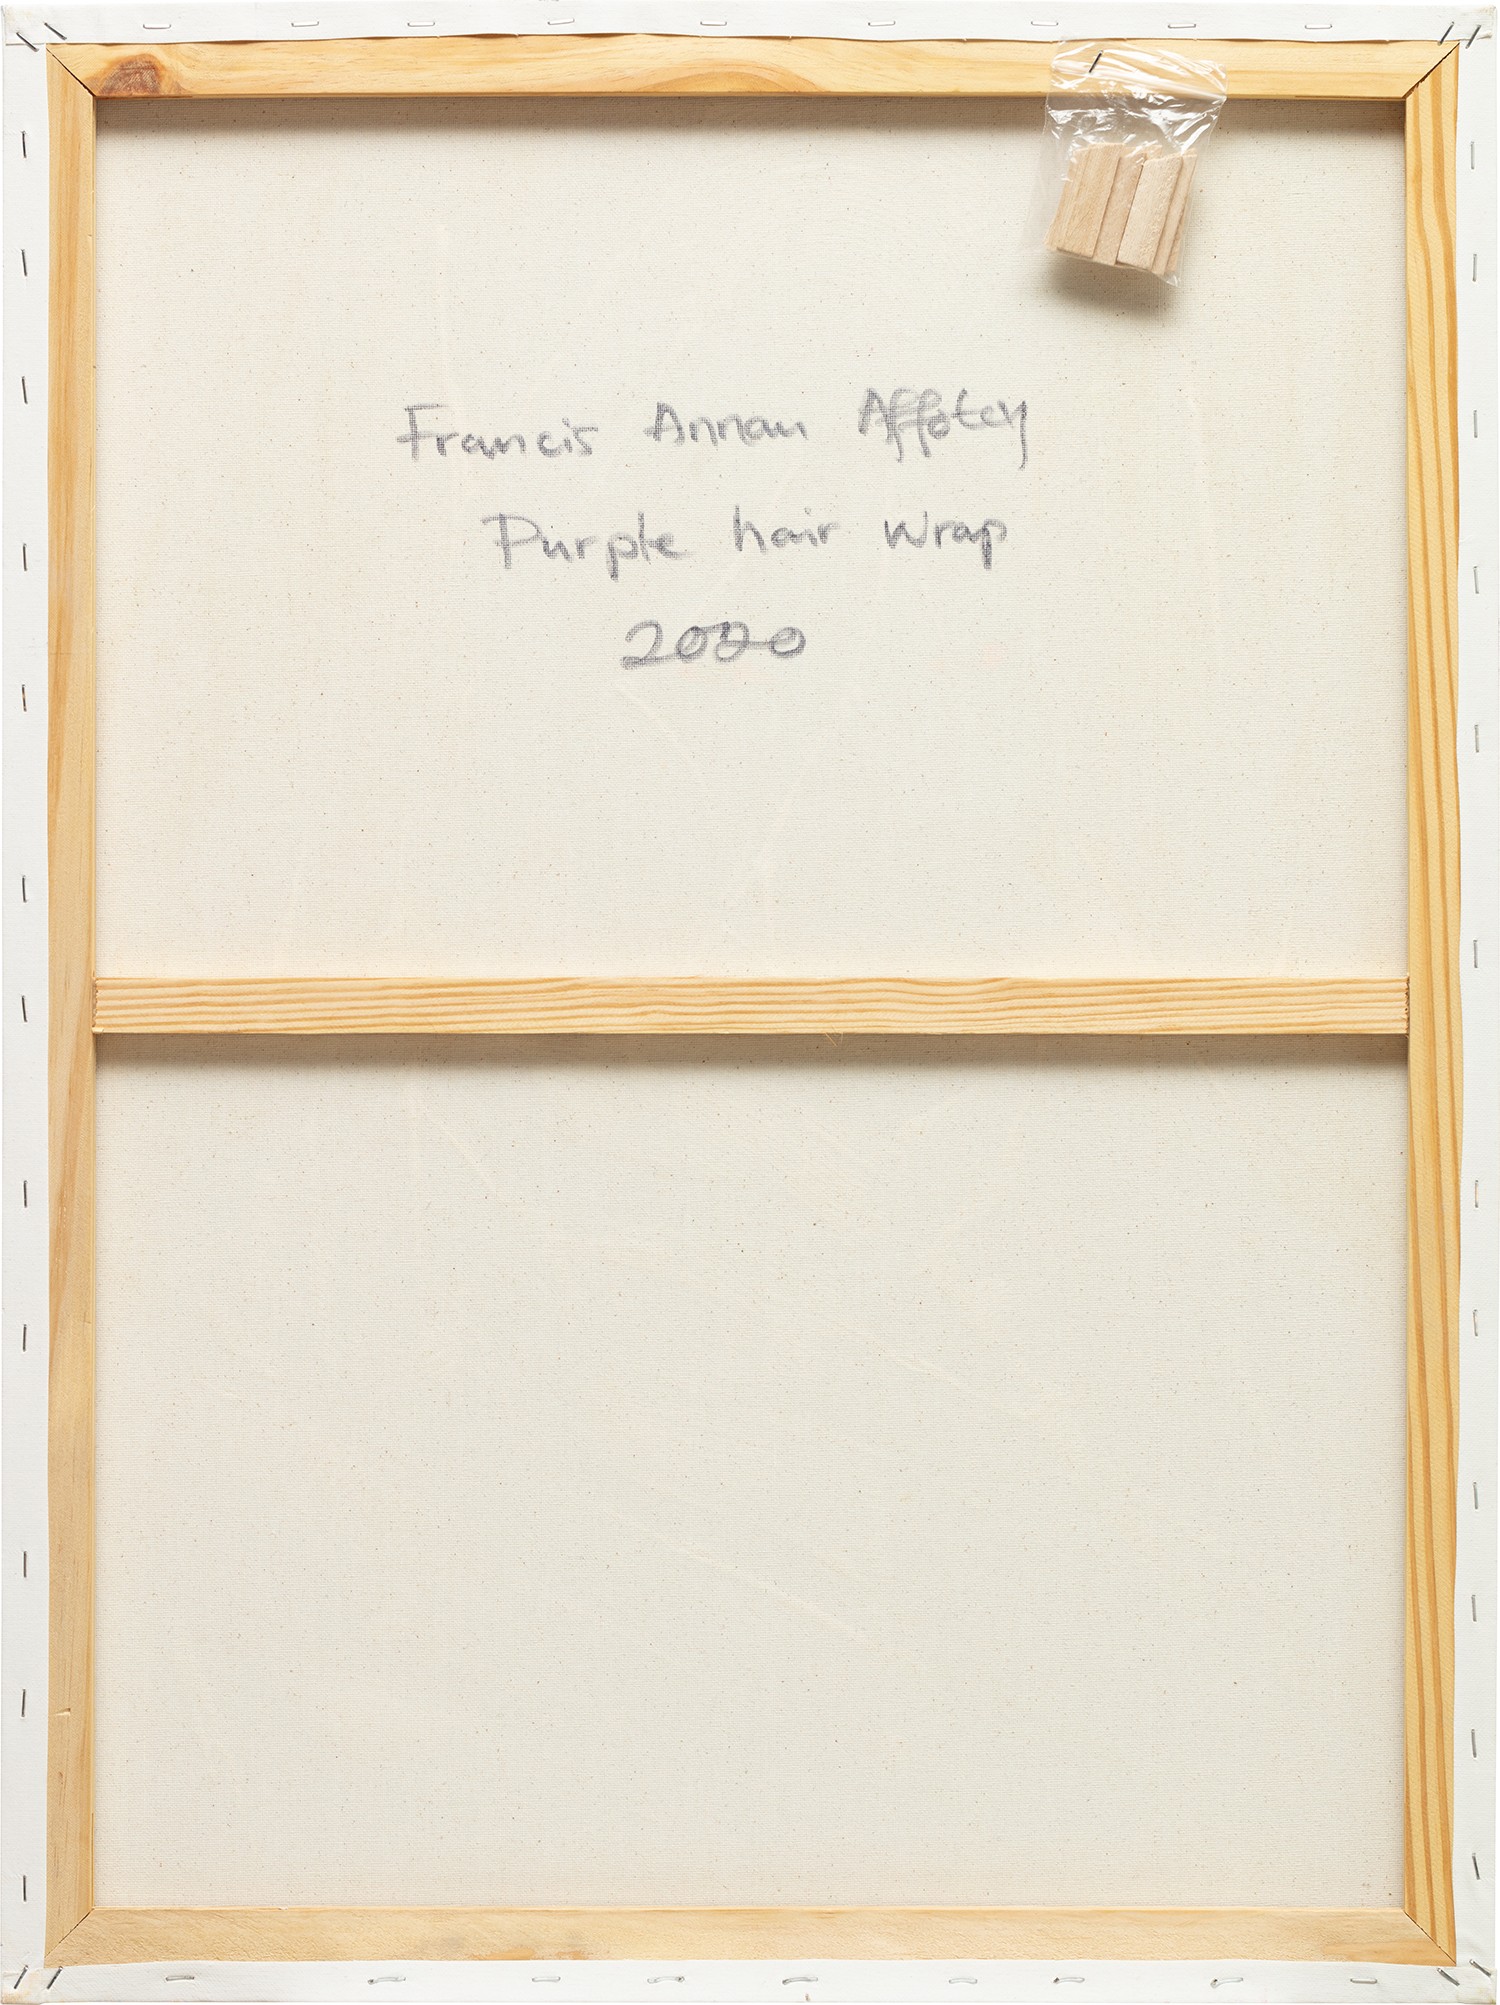 Francis Annan Affotey
Purple hair wrap
2020